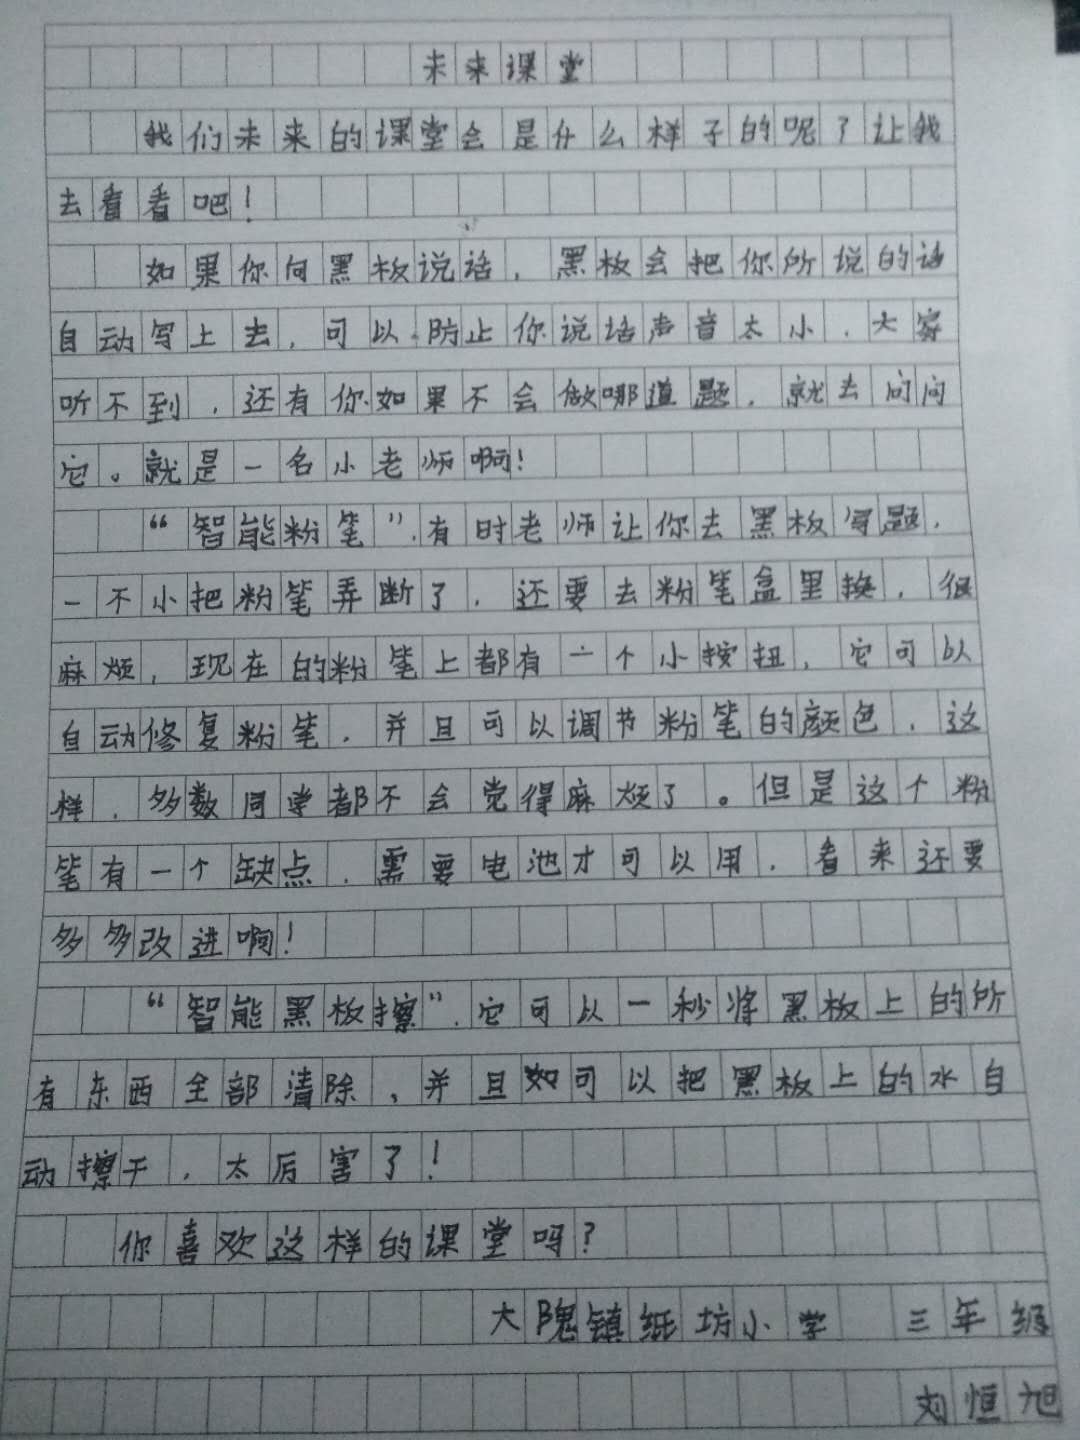 未来课堂
我们未来的课堂会是什么样子的呢？让我
去看看吧！
如果你向黑板说话，黑板会把你所说的话
自动写上去，可以防止你说话声音太小，大家
听不到，还有你如果不会做哪道题，就去问问
它。就是一名小老师啊！
“智能粉笔”，有时老师让你去黑板写题，
一不小把粉笔弄断了，还要去粉笔盒里换，很
麻烦，现在的粉笔上都有一个小按扭，它可以
自动修复粉笔，并且可以调节粉笔的颜色，这
样，多数同学都不会觉得麻烦了。但是这个粉
笔有一个缺点，需要电池才可以用，看来还要
多多改进啊！
“智能黑板擦”，它可以一秒将黑板上的所
有东西全部清除，并且如可以把黑板上的水自
动擦干，太厉害了！
你喜欢这样的课堂吗？
大隗镇纸坊小学 三年级
刘恒旭